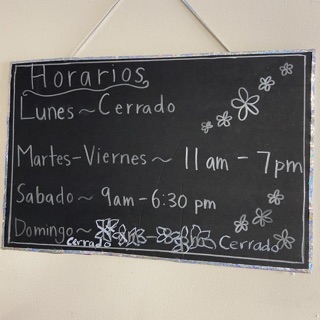 Horarios
Lunes ~ Cerrado
Martes-Viernes ~ 11am - 7pm
Sabado ~ 9am - 6:30 pm
Domingo ~ Cerrado
cerrado